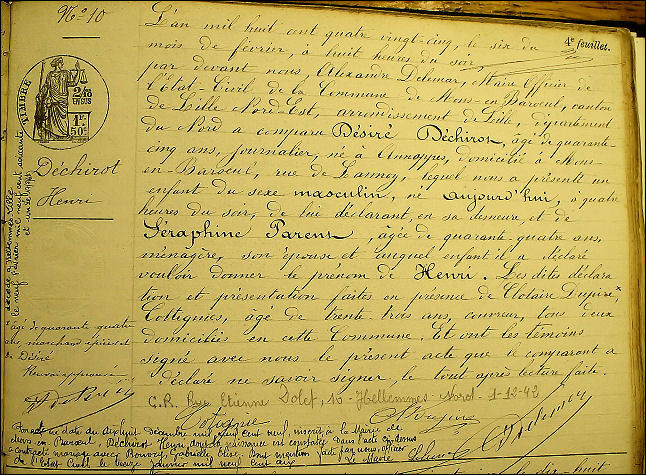 N.º 10
4e feuillet.
L'an mil huit cent quatre vingt-cinq, le six du
mois de février, à huit heures du soir,
par devant nous, Alexandre Delemar, Maire Officier de
l'Etat-Civil de la Commune de Mons-en-Barœul, canton
de Lille Nord-Est, arrondissement de Lille, département
du Nord a comparu Désiré Déchirot, âgé de quarante
cinq ans, journalier, né à Annappes, domicilié à Mons-
en-Barœul, rue de Lannoy, lequel nous a présenté un
enfant du sexe masculin, né aujourd'hui, à quatre
heures du soir, de lui déclarant, en sa demeure et de
Séraphine Parent, âgée de quarante quatre ans,
ménagère, son épouse et auquel enfant il a déclaré
vouloir donner le prénom de Henri. Les dites déclara
tion et présentation faites en présence de Clotaire
Cottignies, âgé de trente trois ans, couvreur, tous deux
domiciliés en cette Commune. Et ont les témoins
signé avec nous le présent acte que le comparant a
déclaré ne savoir signer, le tout après lecture faite.
TIMBRE
2/10
EN SUS
1F
50c
Déchirot
Henri
décédé à Hellemmes Lille
le neuf février mil neuf cent soixante
âgé de quarante quatre
ans, marchand épicier et
Désiré
C.R. Rue Etienne Dolet, 10 - Hellemmes - Nord - 1-12-42
Cotignie
Par acte en date du dix huit décembre mil neuf cent neuf, inscrit à la Mairie de
Mons en Barœul, Déchirot Henri, dont la naissance est constatée dans l'acte ci-dessus
a contracté mariage avec Gabrielle Elise. Dont mention faite par nous officier
de l'Etat Civil le treize janvier mil neuf cent dix
Le Maire